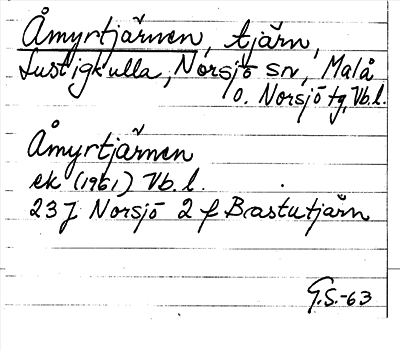 Åmyrtjärnen, tjärn,
Lustigkulla, Norsjö sn, Malå
o. Norsjö tg, Vb. l.
Åmyrtjärnen
ek (1961) Vb. l.
23 J Norsjö 2 f Bastutjärn
G.S.-63